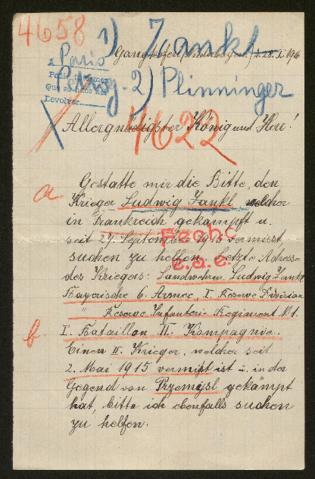 4658
1) Zankl
à Paris
2) Plinninger
Allergnädigster König und Herr!
4622
a
Gestatte mir die Bitte, den
Krieger Ludwig Zankl, welcher
in Frankreich gekämpft u.
seit 27. September 1915 vermisst,
suchen zu helfen. Letzte Adresse
des Kriegers: Landsturm. Ludwig Zankl
Bayerische 6. Armee, I. Reserve Division
" Reserve Infanterie-Regiment N: 1.
I. Bataillon III. Kompagnie.
b
Einen II. Krieger, welcher seit
2. Mai 1915 vermisst ist u. in der
Gegend von Przemysl gekämpft
hat, bitte ich ebenfalls suchen
zu helfen.